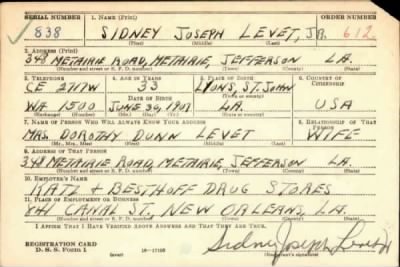 SERIAL NUMBER 1. NAME (Print) ORDER NUMBER
838 SIDNEY JOSEPH LEVET, JR. 612
(First) (Middle) (Last)
2. ADDRESS (Print)
348 METAIRIE ROAD, METAIRIE, JEFFERSON LA.
(Number and street or R. F. D. number) (Town) (County) (State)
3. TELEPHONE 4. AGE IN YEARS 5. PLACE OF BIRTH 6. COUNTRY OF CITIZENSHIP
CE 2717W 33 LYONS, ST. JOHN
DATE OF BIRTH (Town) (County)
WA 1500 JUNE 30, 1907 LA. USA
(Exchange) (Number) (Mo.) (Day) (Yr.) (State or country)
7. NAME OF PERSON WHO WILL ALWAYS KNOW YOUR ADDRESS 8. RELATIONSHIP OF THAT PERSON
MRS. DOROTHY DUNN LEVET WIFE
(Mr., Mrs., Miss) (First) (Middle) (Last)
9. ADDRESS OF THAT PERSON
348 METAIRIE ROAD, METAIRIE, JEFFERSON LA.
(Number and street or R. F. D. number) (Town) (County) (State)
10. EMPLOYER'S NAME
KATZ & BESTHOFF DRUG STORES
11. PLACE OF EMPLOYMENT OR BUSINESS
841 CANAL ST. NEW ORLEANS, LA.
(Number and street or R. F. D. number) (Town) (County) (State)
I AFFIRM THAT I HAVE VERIFIED ABOVE ANSWERS AND THAT THEY ARE TRUE.
REGISTRATION CARD
D. S. S. Form 1 (over) Sidney Joseph Levet Jr
(Registrant's signature)